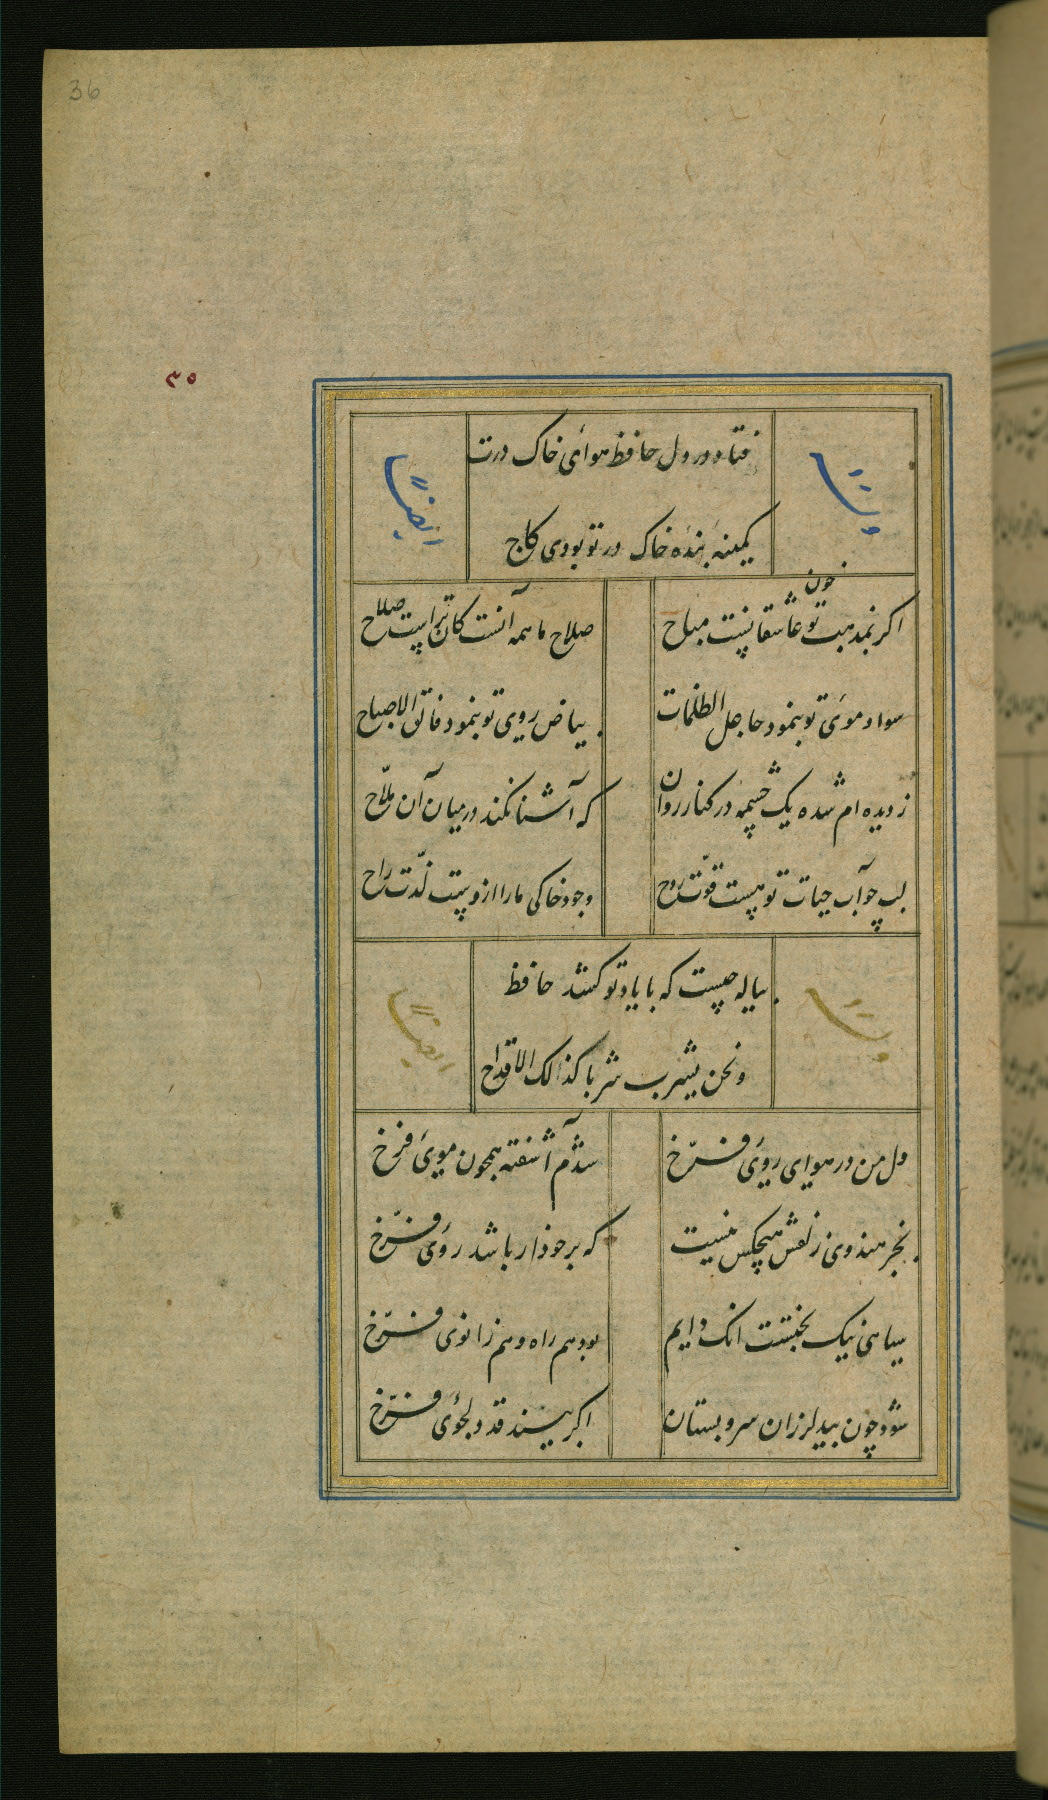 36
۳۵
فتاده در دل حافظ هوای خاک درت
وله
ایضاً
کمینه بنده خاک در تو بودی کاج
اکر بمذهب تو خون عاشقانست مباح
صلاح ما همه آنست کان تراست صلاح
سواد موی تو بنمود جاعل الظلمات
بیاض روی تو بنمود فالق الاصباح
ز دیده ام شده یک چشمه در کنار روان
که آشنا نکند در میان آن ملّاح
لب چو آب حیات تو هست قوّت روح
وجود خاکی ما را ازوست لذّت راح
پیاله چیست که با یاد تو کشند حافظ
وله
ایضاً
و نحن یشرب شربا کذالک الاقداح
دل من در هوای روی فرّخ
شدم آشفته همچون موی فرّخ
بجز هندوی زلفش هیچکس نیست
که برخوذار باشد روی فرّخ
سیاهی نیک بختست انک دایم
بود هم راه و هم زانوی فرّخ
شود چون بید لرزان سرو بستان
اکر بیند قد دلجوی فرّخ